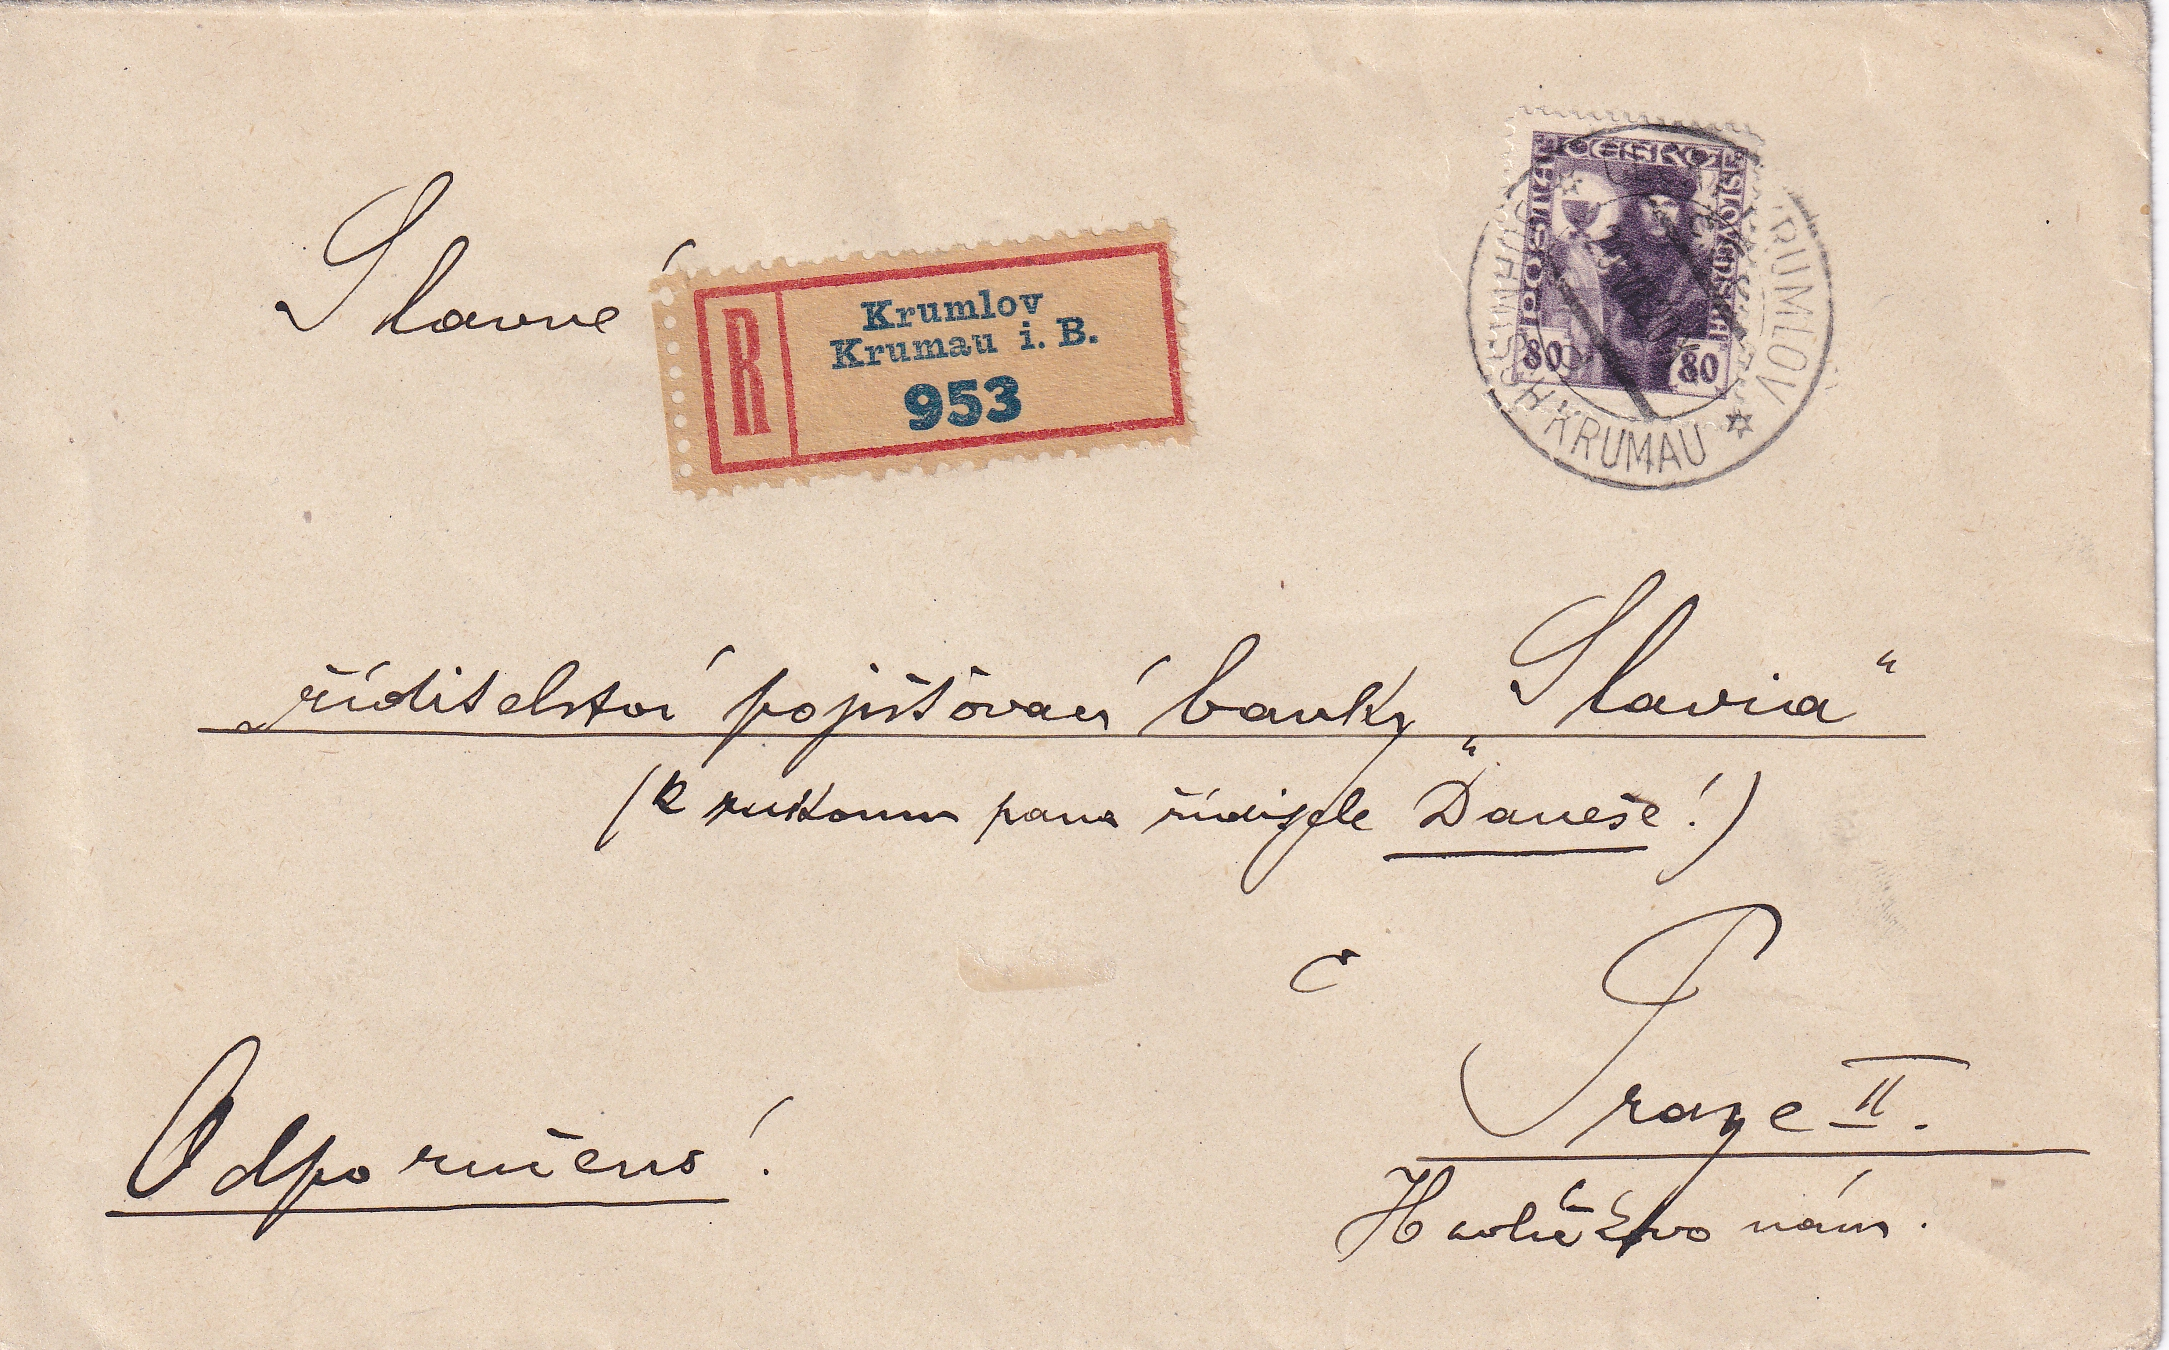 POŠTA ČESKOSLOVENSKÁ
80 80
KRUMLOV
KRUMAU
Slavné
R
Krumlov
Krumau i. B.
953
ředitelství pojišťovací banky „Slavia“
(k rukoum pana ředitele Daneše!)
v
Praze II.
Odporučeno!
Havlíčkovo nám.